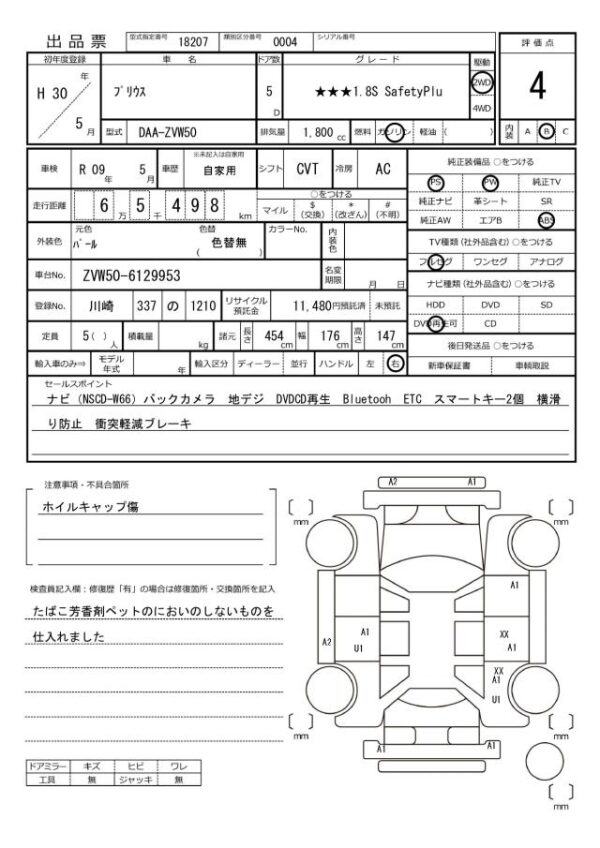 出品票
型式指定番号 18207 類別区分番号 0004 シリアル番号
評価点
4
初年度登録 車名 ドア数 グレード 駆動
H 30 年 5 月
ﾌﾟﾘｳｽ
5 D
★★★1.8S SafetyPlu
2WD
4WD
型式 DAA-ZVW50 排気量 1,800 cc 燃料 ガソリン 軽油 ( )
内装 A B C
車検 R 09 年 5 月 車歴 ※未記入は自家用 自家用 シフト CVT 冷房 AC
走行距離 6 万 5 千 4 9 8 km
○をつける
マイル $(交換) *(改ざん) #(不明)
外装色 元色 ﾊﾟｰﾙ 色替 色替無 ( ) カラーNo. 内装色
車台No. ZVW50-6129953 名変期限 月 日
登録No. 川崎 337 の 1210 リサイクル預託金 11,480円預託済 未預託
定員 5 ( ) 人 積載量 kg 諸元 長さ 454 cm 幅 176 cm 高さ 147 cm
輸入車のみ⇒ モデル年式 年 輸入区分 ディーラー 並行 ハンドル 左 右
純正装備品 ○をつける
PS PW 純正TV
純正ナビ 革シート SR
純正AW エアB ABS
TV種類 (社外品含む) ○をつける
フルセグ ワンセグ アナログ
ナビ種類 (社外品含む) ○をつける
HDD DVD SD
DVD再生可 CD
後日発送品 ○をつける
新車保証書 車輌取説
セールスポイント
ナビ (NSCD-W66) バックカメラ 地デジ DVDCD再生 Bluetooh ETC スマートキー2個 横滑
り防止 衝突軽減ブレーキ
注意事項・不具合箇所
ホイルキャップ傷
検査員記入欄:修復歴「有」の場合は修復箇所・交換箇所を記入
たばこ芳香剤ペットのにおいのしないものを
仕入れました
ドアミラー キズ ヒビ ワレ
工具 無 ジャッキ 無
A2 A1
mm
mm
A1
A1
U1
A2
XX
A1
XX
A1
U1
mm
mm
A1 A1
mm